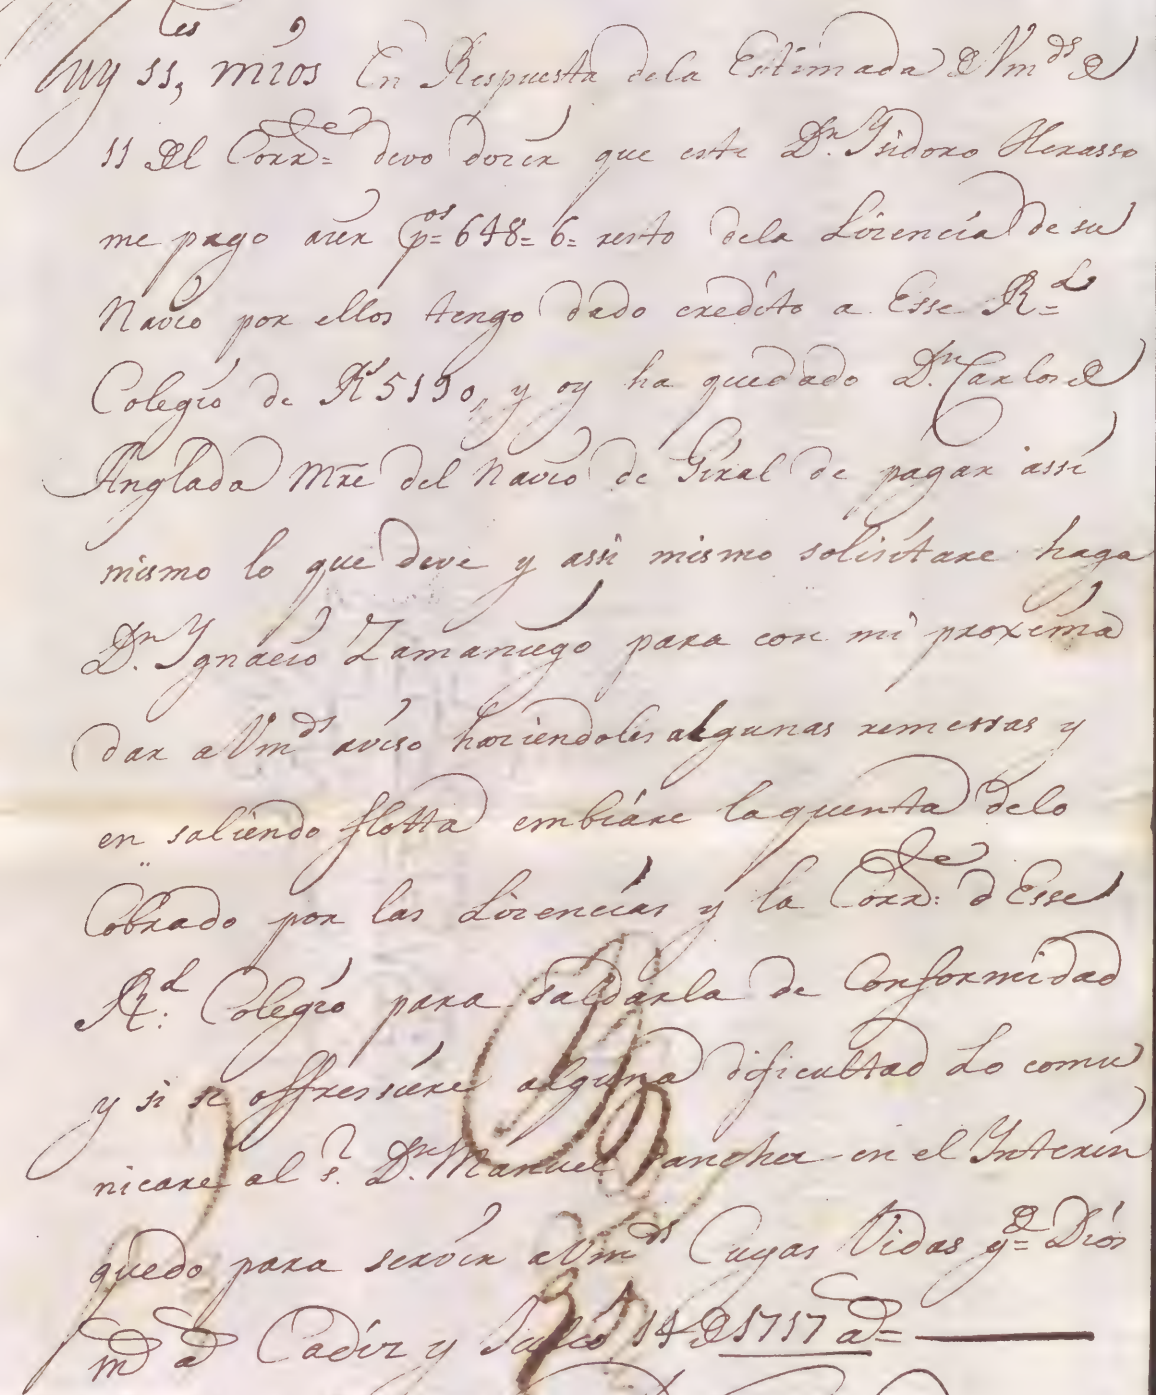 Muy ss,res mios En Respuesta dela Estimada de Vmds de
11 del Corrte= devo decir que este Dn. Ysidoro Herasso
me pago aier pos= 648= 6= resto dela Licencia de su
Navio por ellos tengo dado credito a Esse Rl=
Colegio de Rs 5190, y oy ha quedado Dn. Carlos de
Anglada Mre del Navio de Giral de pagar assi
mismo lo que deve y assi mismo solisitare haga
Dn. Ygnacio Zamaniego para con mi proxima
dar a Vmds aviso haciendoles algunas remessas y
en saliendo flotta embiare la quenta delo
Cobrado por las Licencias y la Corrte: d Esse
Rl: Colegio para saldarla de Conformidad
y si se offressiere alguna dificultad Lo comu
nicare al sr. Dn. Manuel Sanchez en el Interin
quedo para servir a Vmds Cuyas Vidas gde= Dios
ms as Cadiz y Julio 14 de 1717 as=